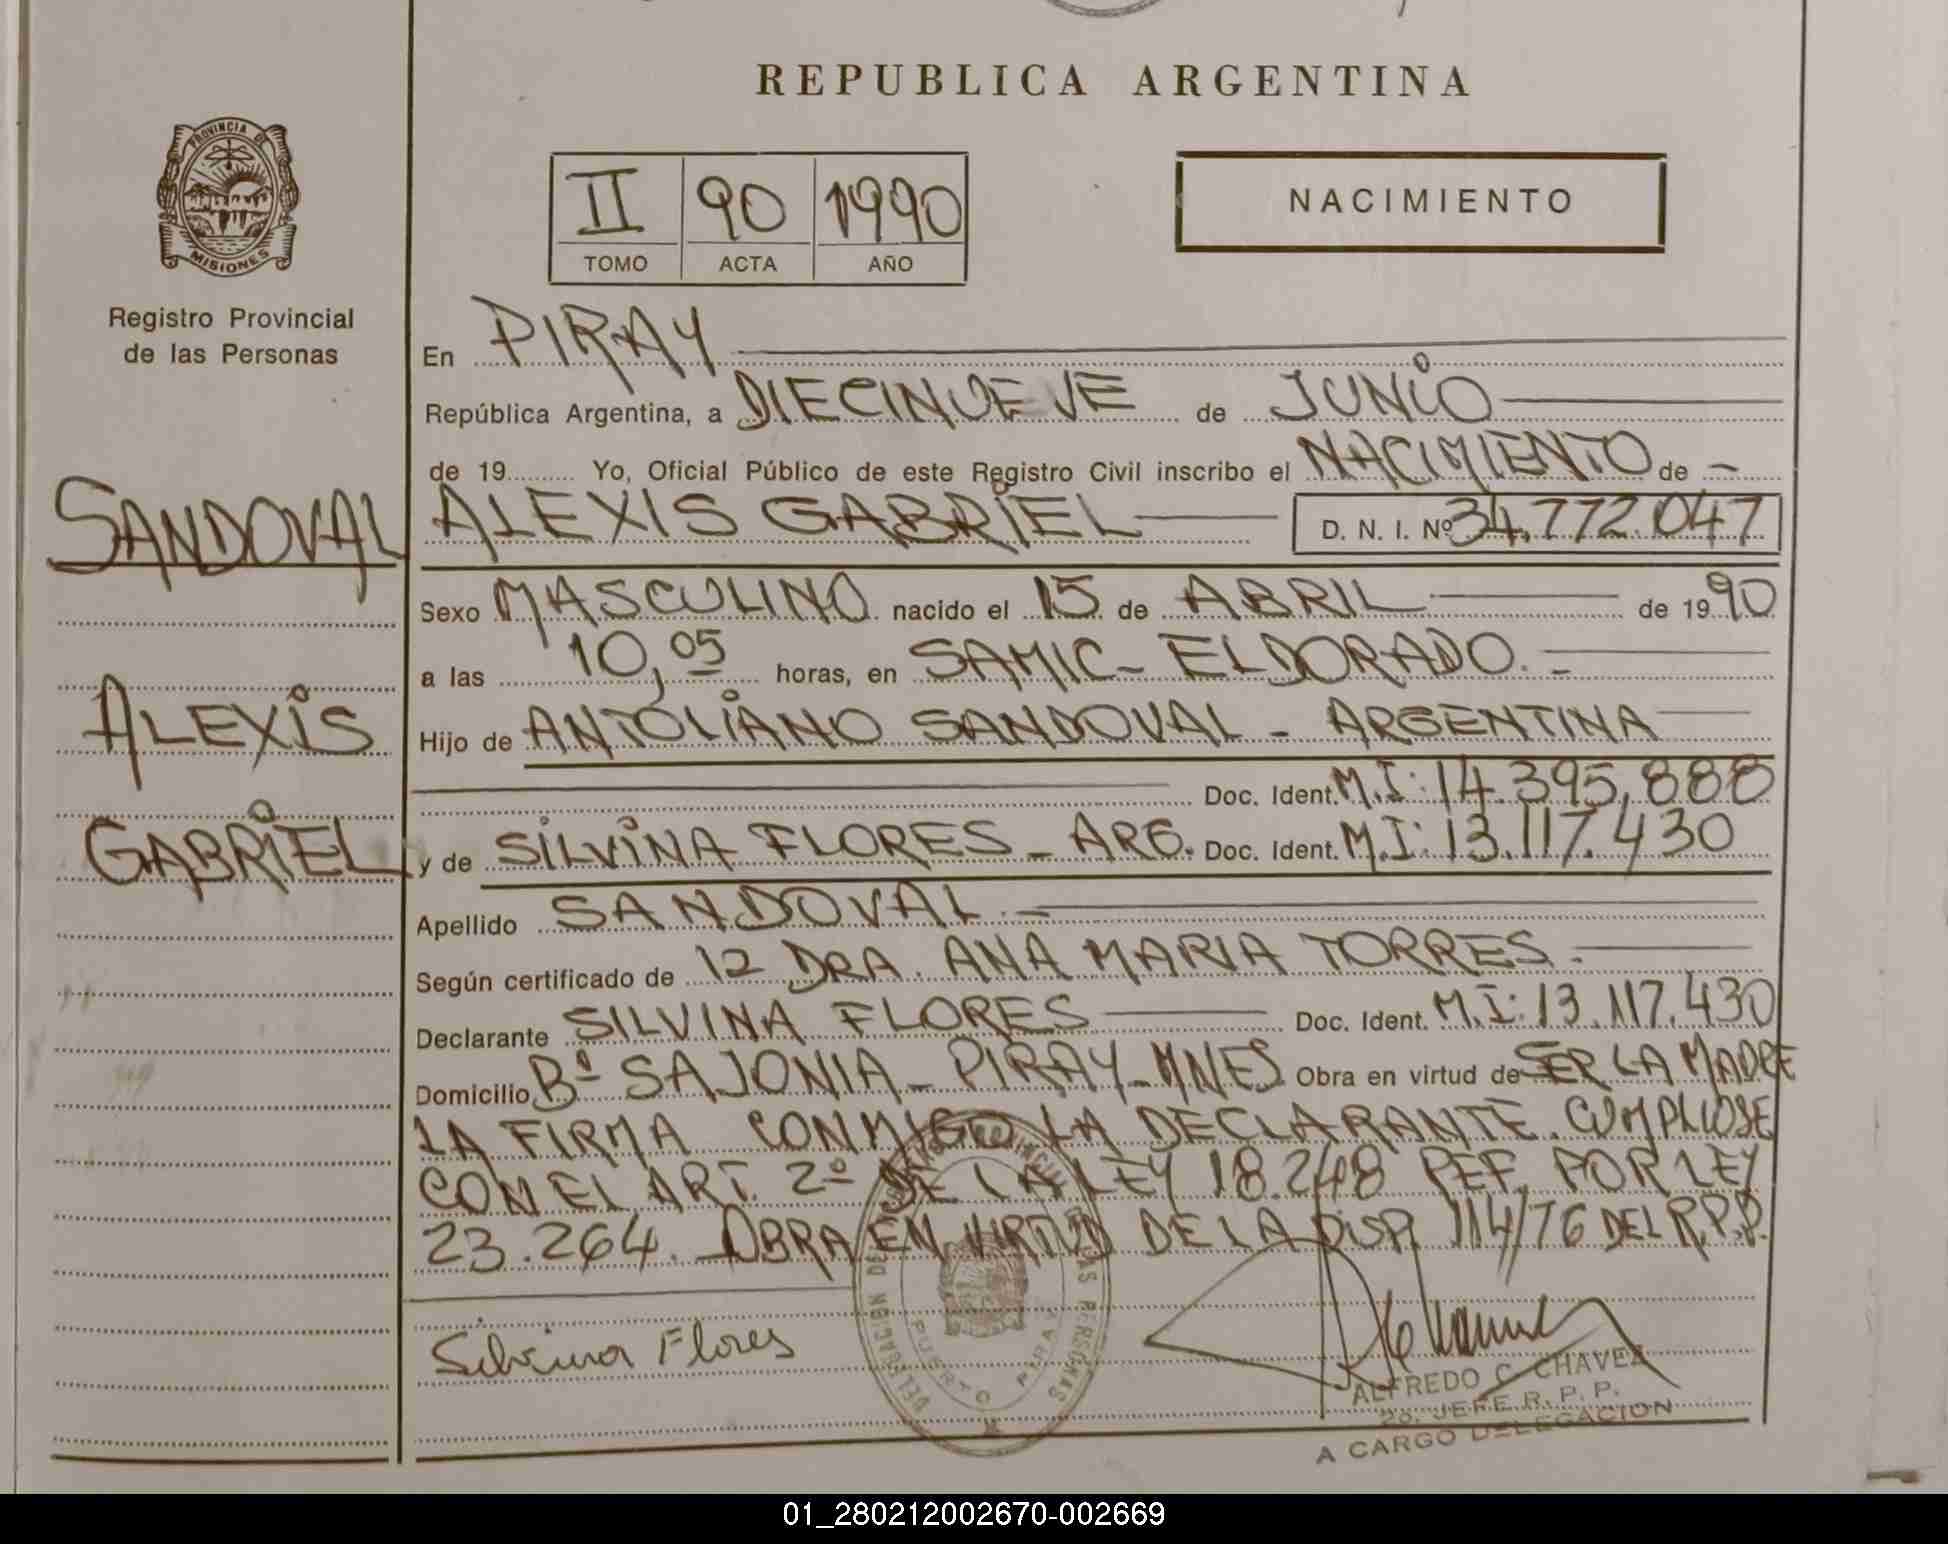 REPUBLICA ARGENTINA
PROVINCIA DE
MISIONES
Registro Provincial
de las Personas
II 90 1990
TOMO ACTA AÑO
NACIMIENTO
En PIRAY
República Argentina, a DIECINUEVE de JUNIO
de 19 Yo, Oficial Público de este Registro Civil inscribo el NACIMIENTO de
SANDOVAL
ALEXIS GABRIEL D. N. I. Nº 34.772.047
Sexo MASCULINO nacido el 15 de ABRIL de 1990
a las 10,05 horas, en SAMIC - ELDORADO.
ALEXIS
Hijo de ANTOLIANO SANDOVAL - ARGENTINA
Doc. Ident. M.I: 14.395,888
GABRIEL
y de SILVINA FLORES - ARG. Doc. Ident. M.I: 13.117.430
Apellido SANDOVAL.-
Según certificado de 12 DRA. ANA MARIA TORRES.
Declarante SILVINA FLORES Doc. Ident. M.I: 13.117.430
Domicilio Bº SAJONIA - PIRAY - MNES Obra en virtud de SER LA MADRE
LA FIRMA CONMIGO LA DECLARANTE. CUMPLIOSE
CON EL ART. 2º DE LA LEY 18.248 REF. POR LEY
23.264. OBRA EN VIRTUD DE LA DISP. 114/76 DEL R.P.P.
Silvina Flores
DELEGACION DE
PROVINCIAL
LAS PERSONAS
PUERTO PIRAY
ALFREDO C. CHAVEZ
2o. JEFE R. P. P.
A CARGO DELEGACION
01_280212002670-002669